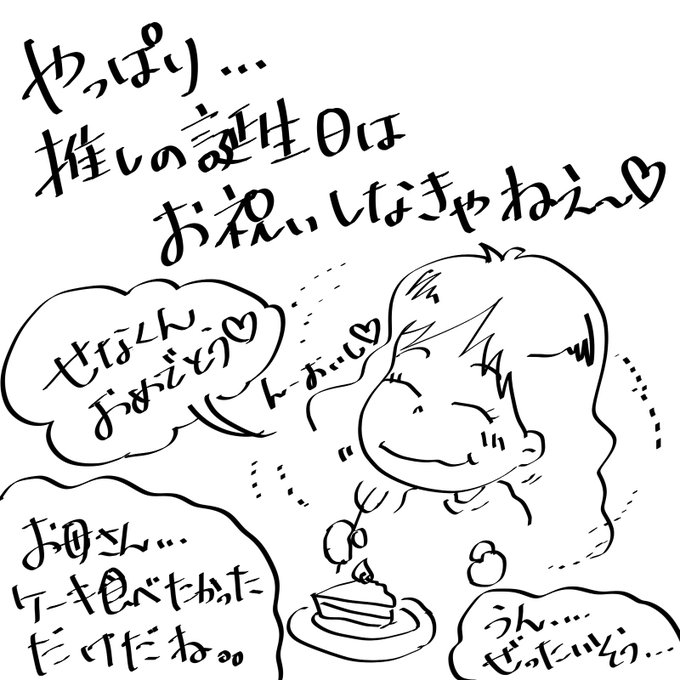 やっぱり…
推しの誕生日は
お祝いしなきゃねえ〜♡
せなくん
おめでとう♡
んーおいし♡
お母さん…
ケーキ食べたかった
だけだね。。
うん….
ぜったいそう…